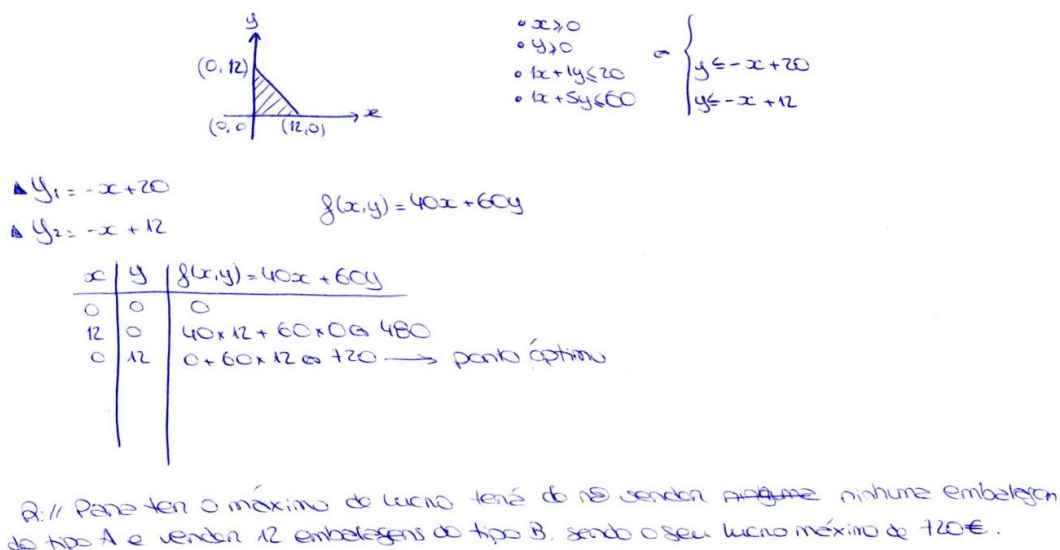 y
(0, 12)
(0, 0) (12,0) x
• x≥0
• y≥0
• 1x+1y≤20
• 1x+5y≤60
= { y≤-x+20
y≤-x+12
▲ y₁= -x+20
▲ y₂= -x+12
f(x,y)=40x+60y
x | y | f(x,y)=40x+60y
0 | 0 | 0
12 | 0 | 40×12+60×0⇔480
0 | 12 | 0+60×12⇔720 → ponto óptimo
R:// Para ter o máximo de lucro terá de não vender ninhuma embalagem
do tipo A e vender 12 embalagens do tipo B, sendo o seu lucro máximo de 720€.